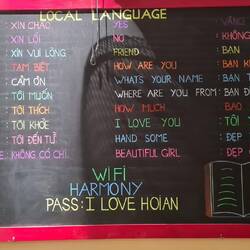 LOCAL LANGUAGE
: XIN CHÀO YES : VÂNG
: XIN LỖI NO : KHÔNG
: XIN VUI LÒNG FRIEND : BẠN
: TẠM BIỆT HOW ARE YOU : BẠN
: CẢM ƠN WHATS YOUR NAME : BẠN T
: TÔI MUỐN WHERE ARE YOU FROM : BẠN ĐẾ
: TÔI THÍCH... HOW MUCH : BAO
: TÔI KHỎE I LOVE YOU : TÔI Y
: TÔI ĐẾN TỪ HAND SOME : ĐẸP
: KHÔNG CÓ CHI. BEAUTIFUL GIRL : ĐẸP G
WIFI
HARMONY
PASS: I LOVE HOIAN